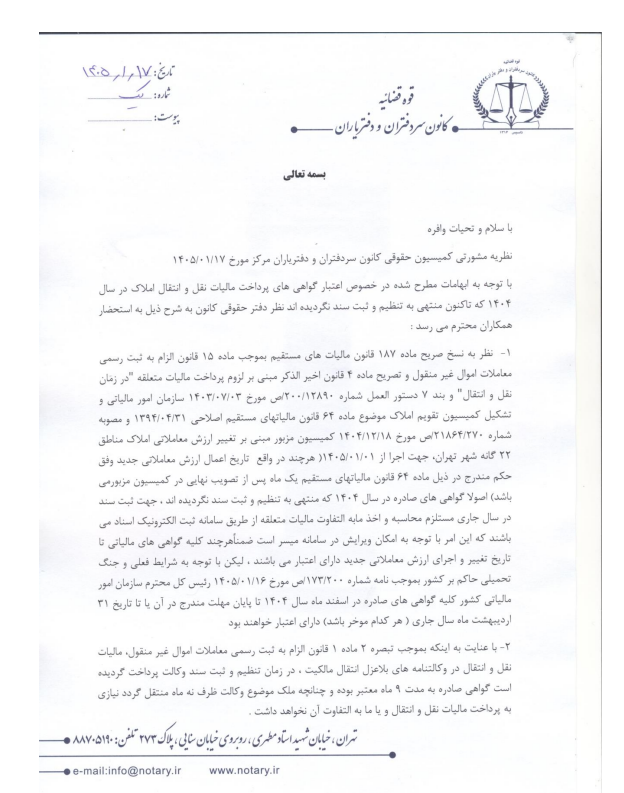 قوه قضائیه
کانون سردفتران و دفتریاران
قوه قضائیه
کانون سردفتران و دفتریاران
تاریخ: ۱۴۰۵/۱/۱۷
شماره: یک
پیوست:
بسمه تعالی
با سلام و تحیات وافره
نظریه مشورتی کمیسیون حقوقی کانون سردفتران و دفتریاران مرکز مورخ ۱۴۰۵/۰۱/۱۷
با توجه به ابهامات مطرح شده در خصوص اعتبار گواهی های پرداخت مالیات نقل و انتقال املاک در سال
۱۴۰۴ که تاکنون منتهی به تنظیم و ثبت سند نگردیده اند نظر دفتر حقوقی کانون به شرح ذیل به استحضار
همکاران محترم می رسد :
۱- نظر به نسخ صریح ماده ۱۸۷ قانون مالیات های مستقیم بموجب ماده ۱۵ قانون الزام به ثبت رسمی
معاملات اموال غیر منقول و تصریح ماده ۴ قانون اخیر الذکر مبنی بر لزوم پرداخت مالیات متعلقه "در زمان
نقل و انتقال" و بند ۷ دستور العمل شماره ۲۰۰/۱۲۸۹۰/ص مورخ ۱۴۰۳/۰۷/۰۳ سازمان امور مالیاتی و
تشکیل کمیسیون تقویم املاک موضوع ماده ۶۴ قانون مالیاتهای مستقیم اصلاحی ۱۳۹۴/۰۴/۳۱ و مصوبه
شماره ۲۱۸۶۴/۲۷۰/ص مورخ ۱۴۰۴/۱۲/۱۸ کمیسیون مزبور مبنی بر تغییر ارزش معاملاتی املاک مناطق
۲۲ گانه شهر تهران، جهت اجرا از ۱۴۰۵/۰۱/۰۱( هرچند در واقع تاریخ اعمال ارزش معاملاتی جدید وفق
حکم مندرج در ذیل ماده ۶۴ قانون مالیاتهای مستقیم یک ماه پس از تصویب نهایی در کمیسیون مزبورمی
باشد) اصولا گواهی های صادره در سال ۱۴۰۴ که منتهی به تنظیم و ثبت سند نگردیده اند ، جهت ثبت سند
در سال جاری مستلزم محاسبه و اخذ مابه التفاوت مالیات متعلقه از طریق سامانه ثبت الکترونیک اسناد می
باشند که این امر با توجه به امکان ویرایش در سامانه میسر است ضمنأهرچند کلیه گواهی های مالیاتی تا
تاریخ تغییر و اجرای ارزش معاملاتی جدید دارای اعتبار می باشند ، لیکن با توجه به شرایط فعلی و جنگ
تحمیلی حاکم بر کشور بموجب نامه شماره ۱۷۳/۲۰۰/ص مورخ ۱۴۰۵/۰۱/۱۶ رئیس کل محترم سازمان امور
مالیاتی کشور کلیه گواهی های صادره در اسفند ماه سال ۱۴۰۴ تا پایان مهلت مندرج در آن یا تا تاریخ ۳۱
اردیبهشت ماه سال جاری ( هر کدام موخر باشد) دارای اعتبار خواهند بود
۲- با عنایت به اینکه بموجب تبصره ۲ ماده ۱ قانون الزام به ثبت رسمی معاملات اموال غیر منقول، مالیات
نقل و انتقال در وکالتنامه های بلاعزل انتقال مالکیت ، در زمان تنظیم و ثبت سند وکالت پرداخت گردیده
است گواهی صادره به مدت ۹ ماه معتبر بوده و چنانچه ملک موضوع وکالت ظرف نه ماه منتقل گردد نیازی
به پرداخت مالیات نقل و انتقال و یا ما به التفاوت آن نخواهد داشت .
تهران ، خیابان شهید استاد مطهری ، روبروی خیابان سنایی ، پلاک ۲۷۳ تلفن: ۸۸۷۰۵۱۹۰
e-mail:info@notary.ir www.notary.ir